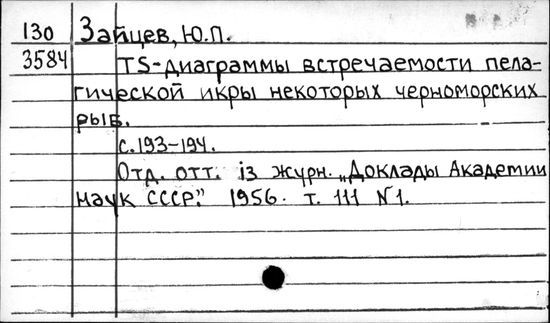 130 Зайцев, Ю.П.
3584 TS-диаграммы встречаемости пела-
гической икры некоторых черноморских
рыб.
с.193-194.
Отд. отт. із журн. „Доклады Академии
наук СССР." 1956. т. 111 №1.